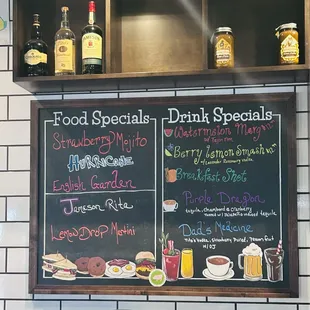 Food Specials
Strawberry Mojito
Hurricane
English Garden
Jameson Rita
Lemon Drop Martini
Drink Specials
Watermelon Mary
Berry Lemon Smash
w/ Lavender Rosemary
Breakfast Shot
Purple Dragon
Dad's Medicine
w/ OJ